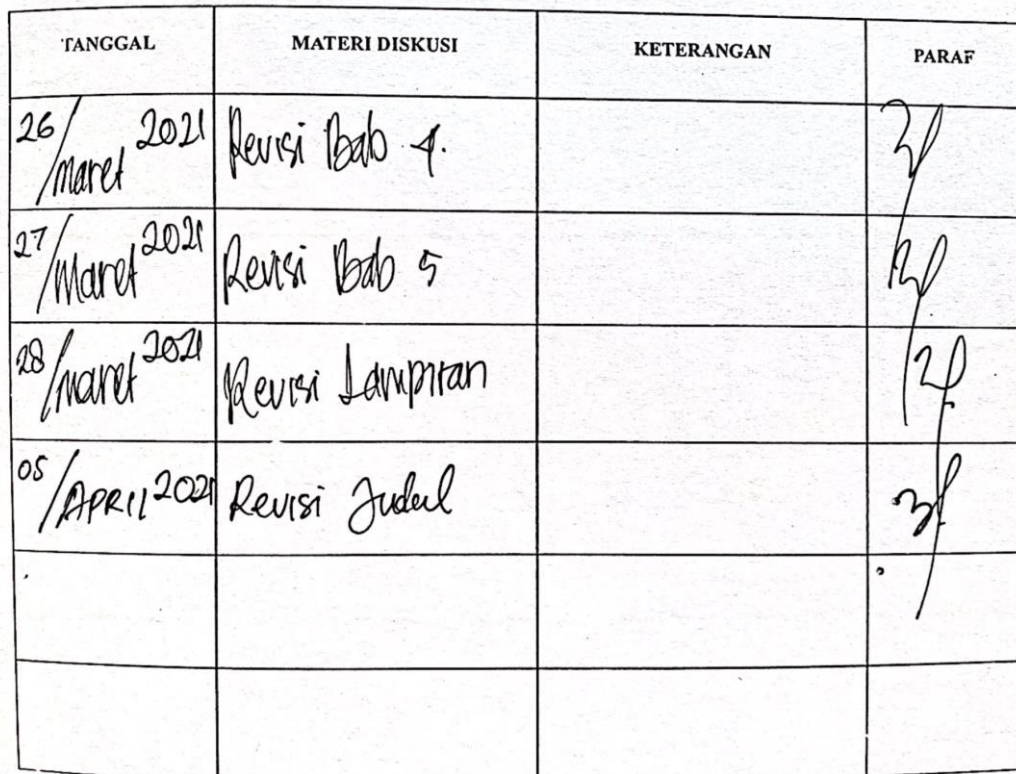 TANGGAL MATERI DISKUSI KETERANGAN PARAF
26/Maret 2021 Revisi Bab 4.
27/Maret 2021 Revisi Bab 5
28/Maret 2021 Revisi Lampiran
05/APRIL 2021 Revisi Judul